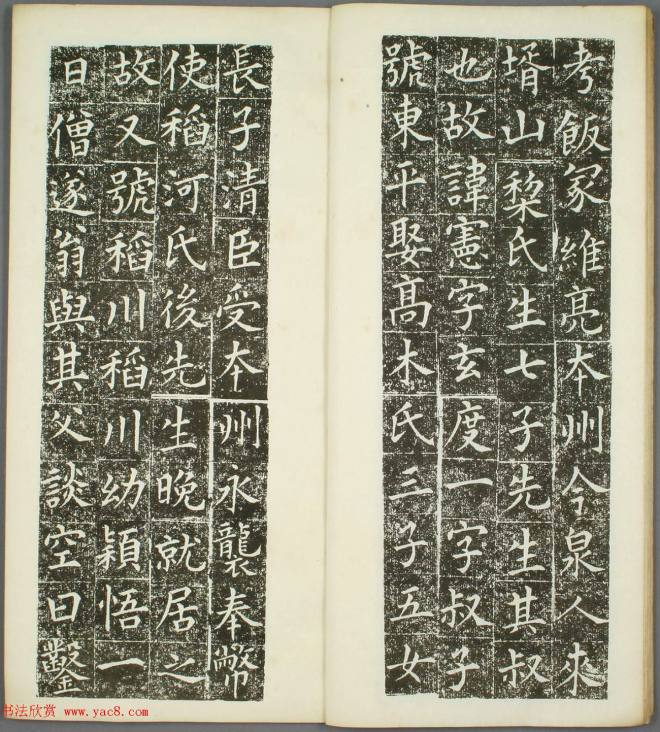 考飯冢維亮本州今泉人來
壻山棃氏生七子先生其叔
也故諱憲字玄度一字叔子
號東平娶高木氏三子五女
長子清臣受本州永襲奉幣
使稻河氏後先生晚就居之
故又號稻川稻川幼穎悟一
日僧遂翁與其父談空曰鑿
书法欣赏 www.yac8.com